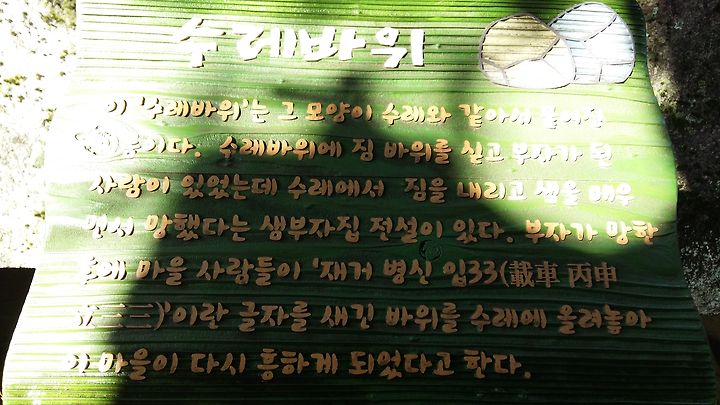 수레바위
이 '수레바위'는 그 모양이 수레와 같아서 붙여진
이름이다. 수레바위에 짐 바위를 싣고 부자가 된
사람이 있었는데 수레에서 짐을 내리고 샘을 메우
면서 망했다는 샘부자집 전설이 있다. 부자가 망한
후에 마을 사람들이 '재거 병신 입33(載車 丙申
立三三)'이란 글자를 새긴 바위를 수레에 올려놓아
이 마을이 다시 흥하게 되었다고 한다.